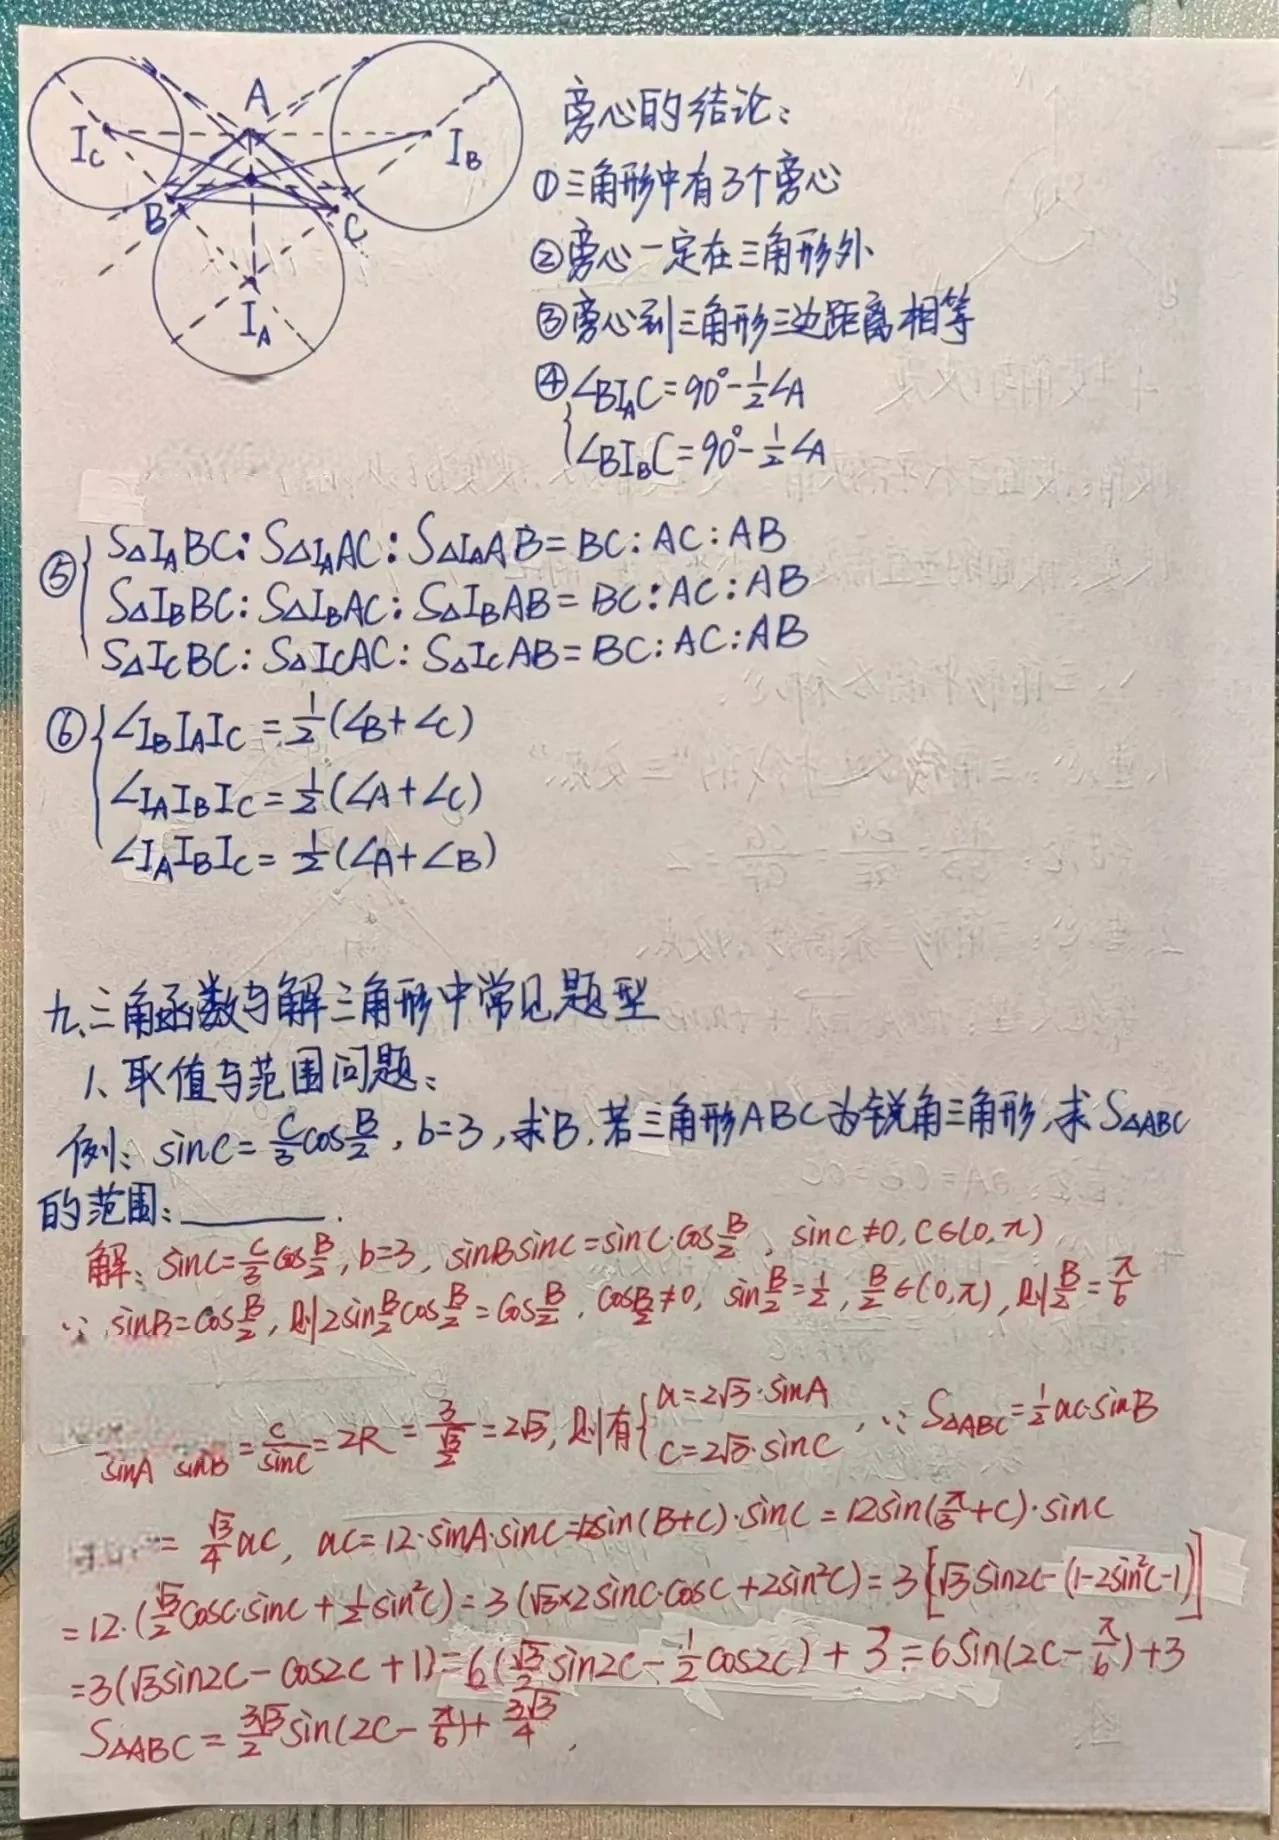 A
I_C
I_B
B
C
I_A
旁心的结论：
①三角形中有3个旁心
②旁心一定在三角形外
③旁心到三角形三边距离相等
④∠BI_AC=90°-\frac{1}{2}∠A
∠BI_BC=90°-\frac{1}{2}∠A
⑤ S△I_ABC:S△I_AAC:S△I_AAB=BC:AC:AB
S△I_BBC:S△I_BAC:S△I_BAB=BC:AC:AB
S△I_CBC:S△I_CAC:S△I_CAB=BC:AC:AB
⑥ ∠I_BI_AI_C=\frac{1}{2}(∠B+∠C)
∠I_AI_BI_C=\frac{1}{2}(∠A+∠C)
∠I_AI_BI_C=\frac{1}{2}(∠A+∠B)
九、三角函数与解三角形中常见题型
1、取值与范围问题：
例：sinC=\frac{c}{3}cos\frac{B}{2}, b=3,求B,若三角形ABC为锐角三角形,求S△ABC
的范围：______.
解：sinC=\frac{c}{3}cos\frac{B}{2}, b=3, sinBsinC=sinC·cos\frac{B}{2}, sinC≠0, C∈(0,π)
∵ sinB=cos\frac{B}{2}, 则2sin\frac{B}{2}cos\frac{B}{2}=cos\frac{B}{2}, cos\frac{B}{2}≠0, sin\frac{B}{2}=\frac{1}{2}, \frac{B}{2}∈(0,π), 则\frac{B}{2}=\frac{π}{6}
sinA sinB =\frac{c}{sinC}=2R=\frac{3}{\frac{√3}{2}}=2√3, 则有{a=2√3·sinA
c=2√3·sinC, ∵ S△ABC=\frac{1}{2}ac·sinB
=\frac{√3}{4}ac, ac=12·sinA·sinC=12sin(B+C)·sinC=12sin(\frac{π}{3}+C)·sinC
=12·(\frac{√3}{2}cosC·sinC+\frac{1}{2}sin²C)=3(√3×2sinC·cosC+2sin²C)=3[√3sin2C-(1-2sin²C-1)]
=3(√3sin2C-cos2C+1)=6(\frac{√3}{2}sin2C-\frac{1}{2}cos2C)+3=6sin(2C-\frac{π}{6})+3
S△ABC=\frac{3√3}{2}sin(2C-\frac{π}{6})+\frac{3√3}{4},